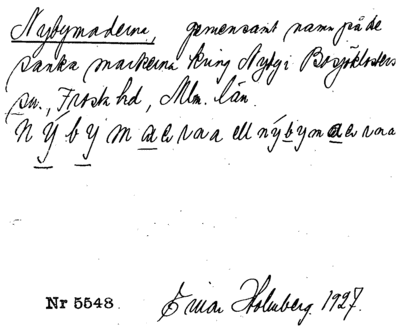 Nybymaderna, gemensamt namn på de
sanka markerna kring Nyby i Bosjöklosters
sn., Frosta hd, Mlm. län.
nýbýmaꝺɛrna ell nýbymaꝺɛrna
Nr 5548. Einar Holmberg 1927.